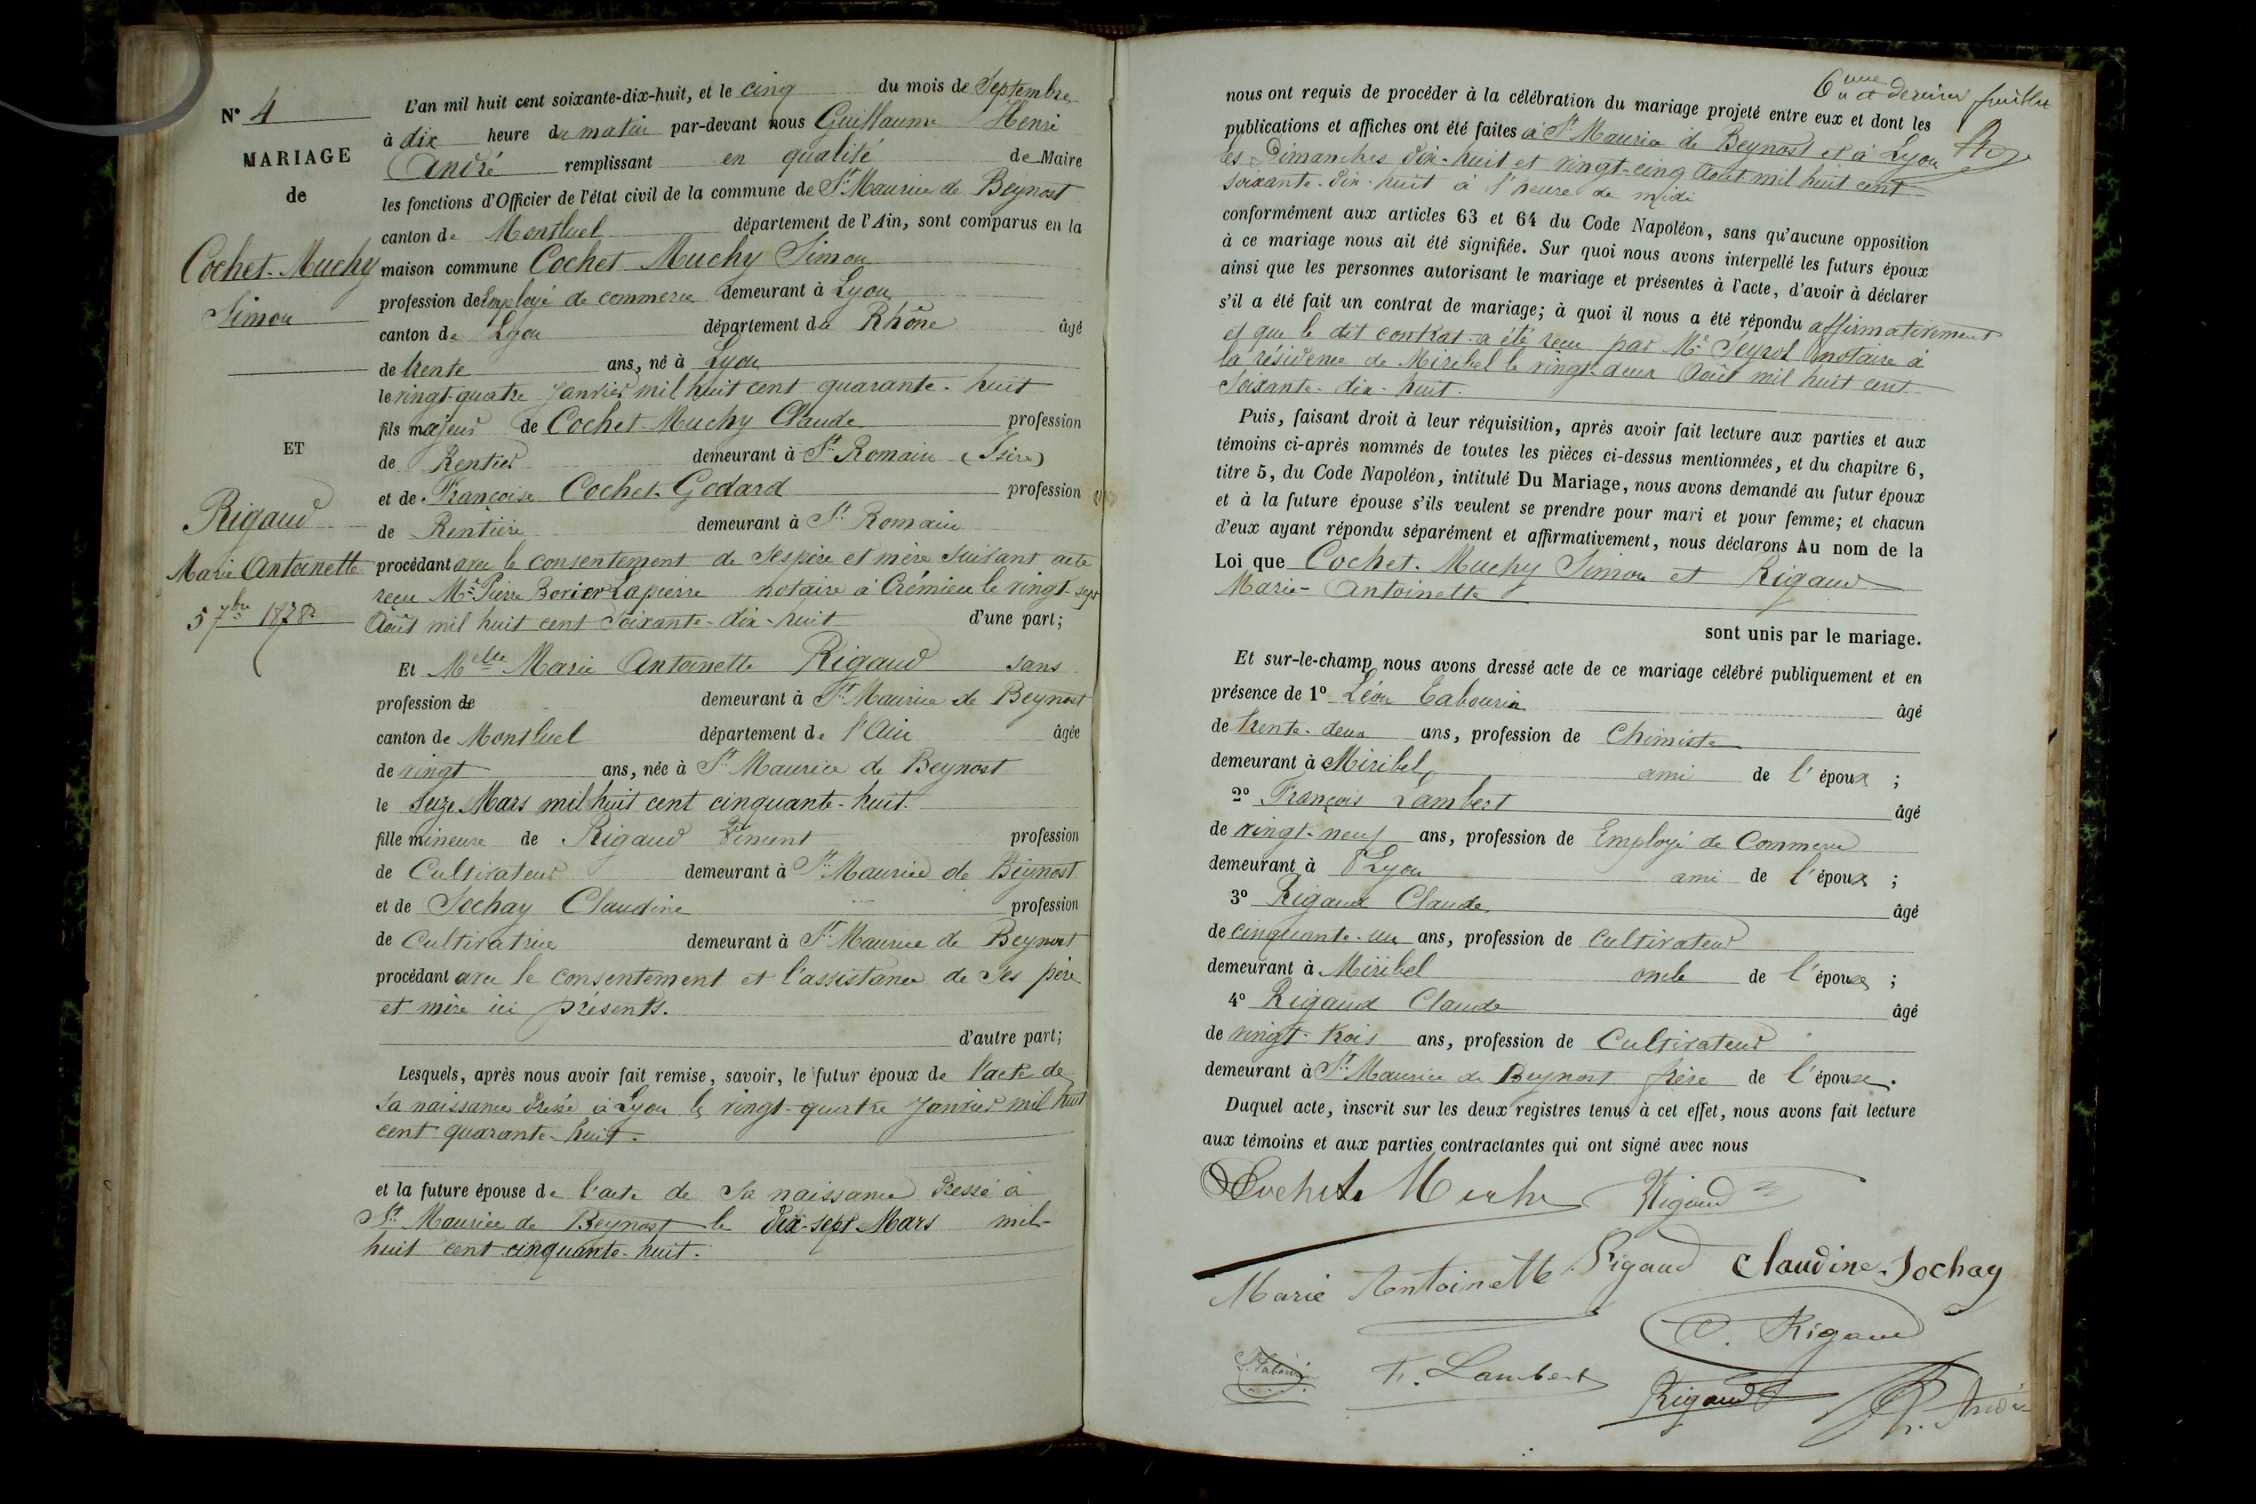 N° 4
MARIAGE
de
Cochet-Muchy
Simon
ET
Rigaud
Marie Antoinette
5 7bre 1878
L'an mil huit cent soixante-dix-huit, et le cinq du mois de Septembre
à dix heure du matin par-devant nous Guillaume Henri
André remplissant en qualité de Maire
les fonctions d'Officier de l'état civil de la commune de St Maurice de Beynost
canton de Montluel département de l'Ain, sont comparus en la
maison commune Cochet Muchy Simon
profession de Employé de commerce demeurant à Lyon
canton de Lyon département du Rhône âgé
de trente ans, né à Lyon
le vingt-quatre Janvier mil huit cent quarante-huit
fils majeur de Cochet-Muchy Claude profession
de Rentier demeurant à St Romain (Isère)
et de Françoise Cochet-Godard profession
de Rentière demeurant à St Romain
procédant avec le consentement de ses père et mère suivant acte
reçu Me Pierre Lapierre notaire à Crémieu le vingt-sept
Août mil huit cent Soixante-dix-huit d'une part;
Et Melle Marie Antoinette Rigaud sans
profession de demeurant à St Maurice de Beynost
canton de Montluel département de l'Ain âgée
de vingt ans, née à St Maurice de Beynost
le Seize Mars mil huit cent cinquante-huit.
fille mineure de Rigaud Vincent profession
de Cultivateur demeurant à St Maurice de Beynost
et de Jochay Claudine profession
de Cultivatrice demeurant à St Maurice de Beynost
procédant avec le consentement et l'assistance de ses père
et mère ici présents.
d'autre part;
Lesquels, après nous avoir fait remise, savoir, le futur époux de l'acte de
sa naissance dressé à Lyon le vingt-quatre Janvier mil huit
cent quarante-huit.
et la future épouse de l'acte de sa naissance dressé à
St Maurice de Beynost le dix-sept Mars mil-
huit cent cinquante-huit.
6me et dernier feuillet
nous ont requis de procéder à la célébration du mariage projeté entre eux et dont les
publications et affiches ont été faites à St Maurice de Beynost et à Lyon
les Dimanches dix-huit et vingt-cinq Août mil huit cent
soixante-dix-huit à l'heure de midi
conformément aux articles 63 et 64 du Code Napoléon, sans qu'aucune opposition
à ce mariage nous ait été signifiée. Sur quoi nous avons interpellé les futurs époux
ainsi que les personnes autorisant le mariage et présentes à l'acte, d'avoir à déclarer
s'il a été fait un contrat de mariage; à quoi il nous a été répondu affirmativement
et que le dit contrat a été reçu par Me notaire à
la résidence de Miribel le vingt-deux Août mil huit cent
Soixante-dix-huit.
Puis, faisant droit à leur réquisition, après avoir fait lecture aux parties et aux
témoins ci-après nommés de toutes les pièces ci-dessus mentionnées, et du chapitre 6,
titre 5, du Code Napoléon, intitulé Du Mariage, nous avons demandé au futur époux
et à la future épouse s'ils veulent se prendre pour mari et pour femme; et chacun
d'eux ayant répondu séparément et affirmativement, nous déclarons Au nom de la
Loi que Cochet-Muchy Simon et Rigaud
Marie-Antoinette
sont unis par le mariage.
Et sur-le-champ nous avons dressé acte de ce mariage célébré publiquement et en
présence de 1° Léon Tabourin âgé
de trente-deux ans, profession de Chimiste
demeurant à Miribel ami de l'époux ;
2° François Lambert âgé
de vingt-neuf ans, profession de Employé de Commerce
demeurant à Lyon ami de l'époux ;
3° Rigaud Claude âgé
de cinquante-un ans, profession de Cultivateur
demeurant à Miribel oncle de l'épouse ;
4° Rigaud Claude âgé
de vingt-trois ans, profession de Cultivateur
demeurant à St Maurice de Beynost frère de l'épouse.
Duquel acte, inscrit sur les deux registres tenus à cet effet, nous avons fait lecture
aux témoins et aux parties contractantes qui ont signé avec nous
Cochet Muchy Rigaud
Marie Antoinette Rigaud Claudine Jochay
C. Rigaud
L. Tabourin F. Lambert Rigaud André